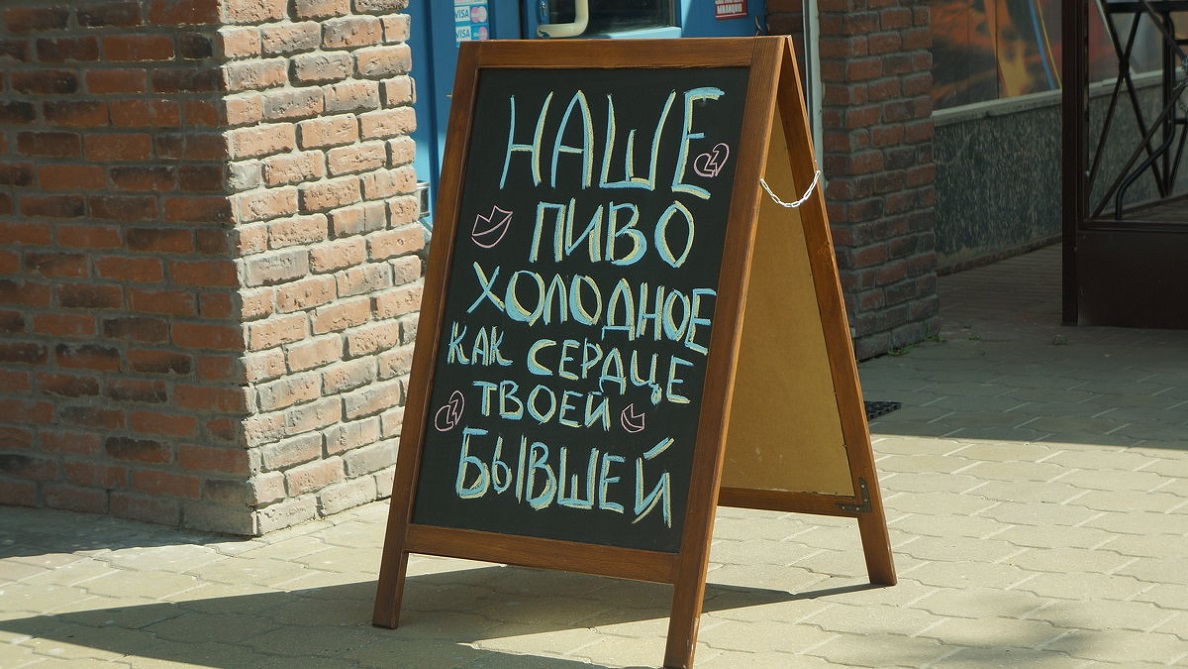 VISA
VISA
НАШЕ
ПИВО
ХОЛОДНОЕ
КАК СЕРДЦЕ
ТВОЕЙ
БЫВШЕЙ